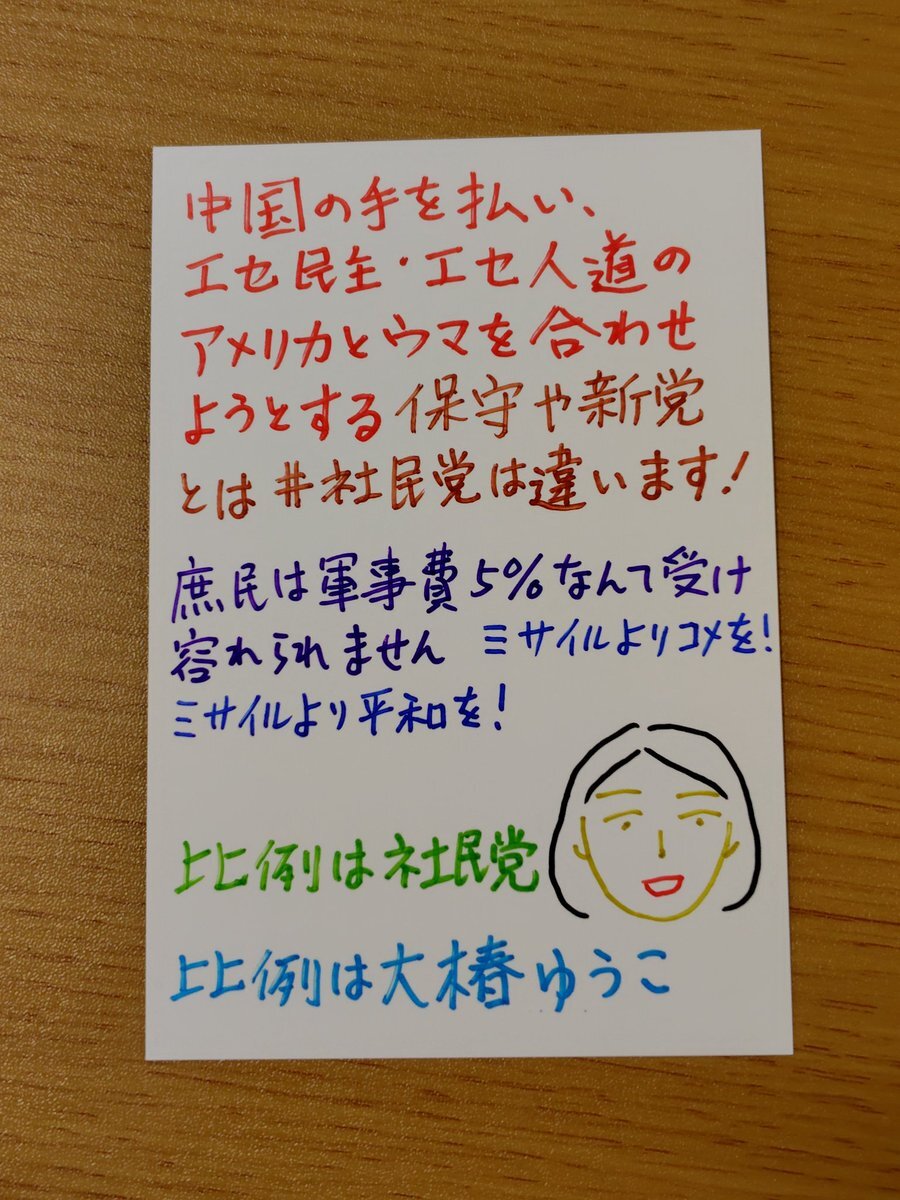 中国の手を払い、
エセ民主・エセ人道の
アメリカとウマを合わせ
ようとする保守や新党
とは#社民党は違います!
庶民は軍事費5%なんて受け
容れられません ミサイルよりコメを!
ミサイルより平和を!
比例は社民党
比例は大椿ゆうこ